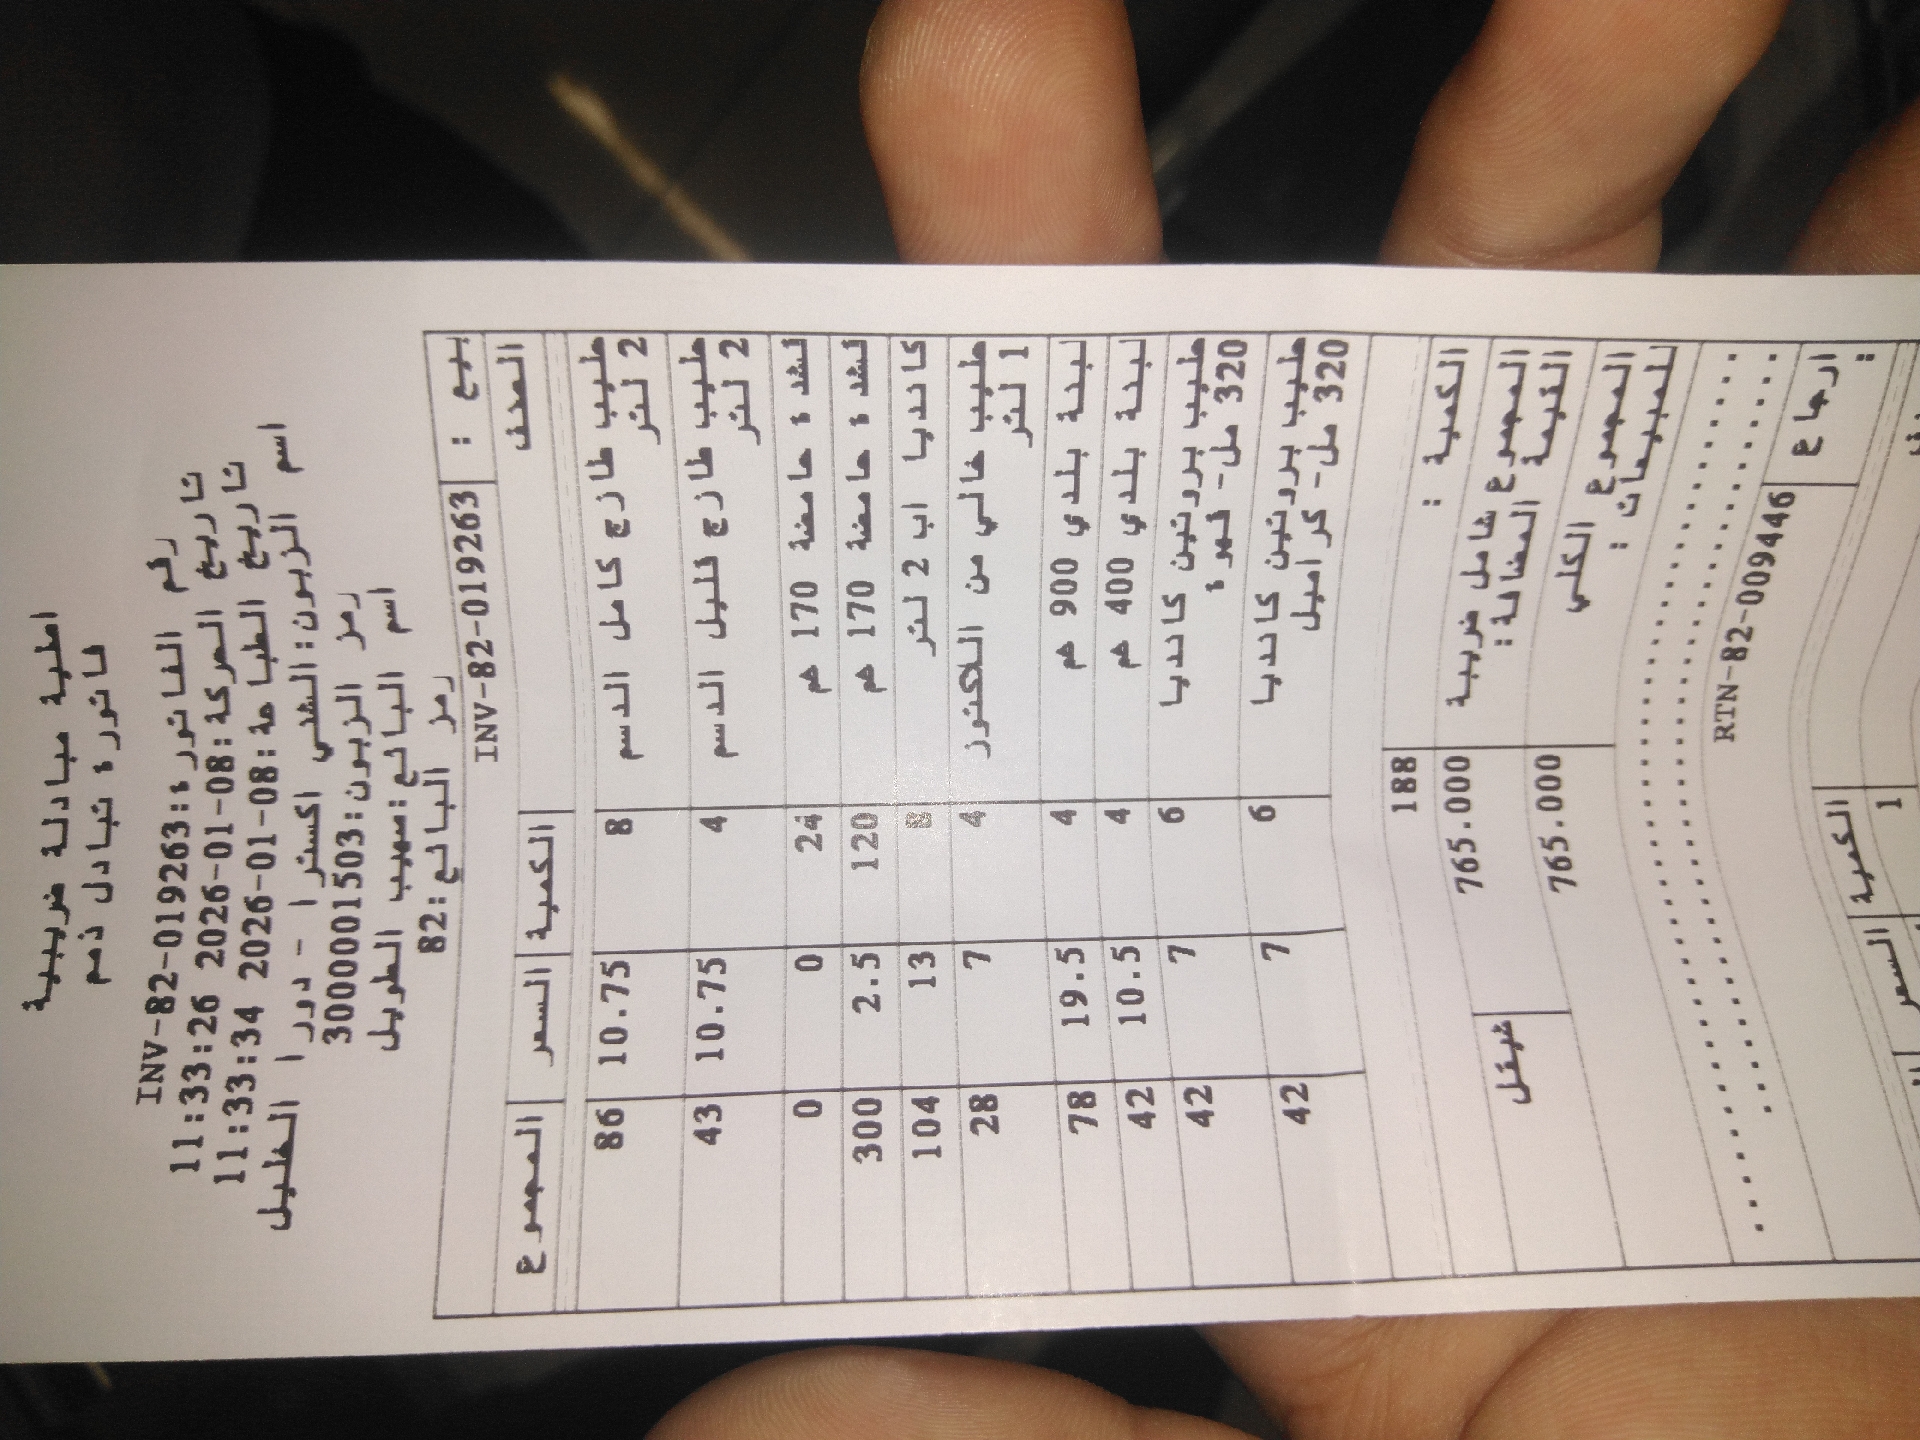 اصلية مبادلة ضريبية
فاتورة تبادل ذمم
رقم الفاتورة:INV-82-019263
تاريخ الحركة:08-01-2026 11:33:26
تاريخ الطباعة:08-01-2026 11:33:34
اسم الزبون:الشني اكسترا - دورا الخليل
رمز الزبون:3000001503
اسم البائع:صهيب الطويل
رمز البائع:82
بيع : INV-82-019263
الصنف الكمية السعر المجموع
حليب طازج كامل الدسم 2 لتر 8 10.75 86
حليب طازج قليل الدسم 2 لتر 4 10.75 43
قشدة حامضة 170 غم 24 0 0
قشدة حامضة 170 غم 120 2.5 300
كانديا اب 2 لتر 8 13 104
حليب خالي من اللاكتوز 1 لتر 4 7 28
لبنة بلدي 900 غم 4 19.5 78
لبنة بلدي 400 غم 4 10.5 42
حليب بروتين كانديا 320 مل- قهوة 6 7 42
حليب بروتين كانديا 320 مل- كراميل 6 7 42
الكمية : 188
المجموع شامل ضريبة القيمة المضافة: 765.000 شيقل
المجموع الكلي للمبيعات : 765.000
ارجاع : RTN-82-009446
الكمية السعر
1